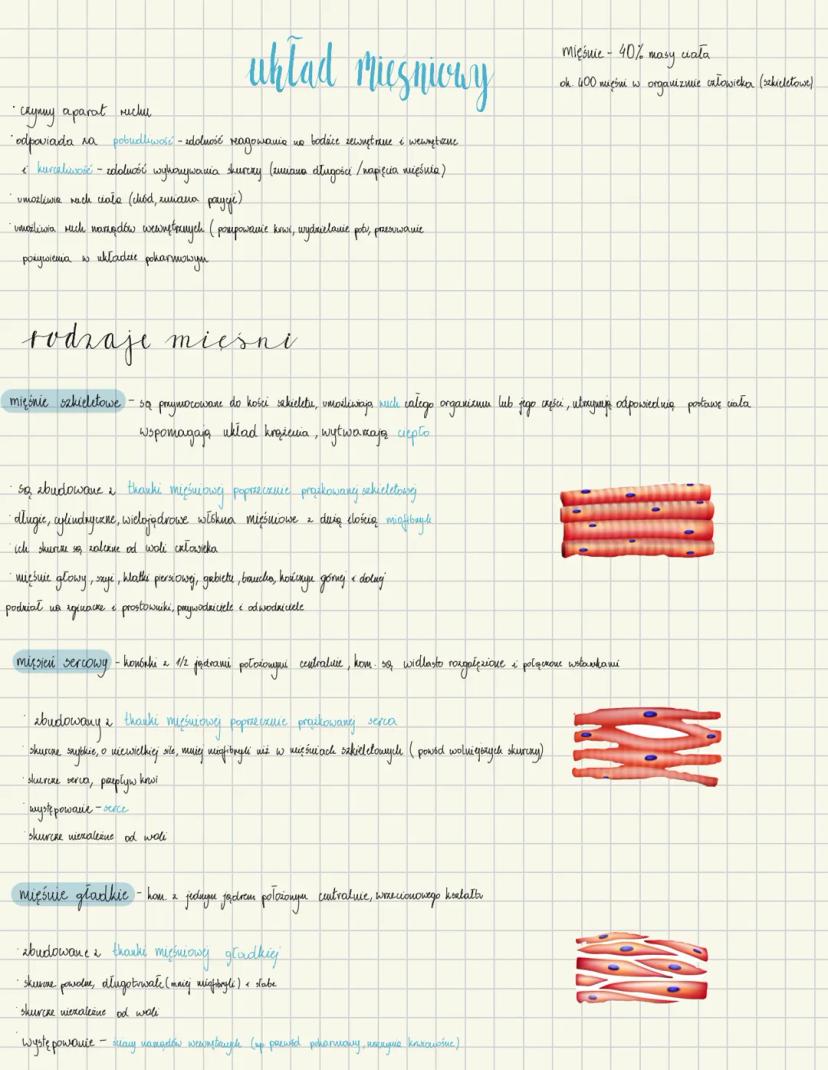 układ mięśniowy
mięśnie - 40% masy ciała
ok. 400 mięśni w organizmie człowieka (szkieletowe)
· czynny aparat ruchu
· odpowiada za pobudliwość - zdolność reagowania na bodźce zewnętrzne i wewnętrzne
i kurczliwość - zdolność wykonywania skurczy (zmiana długości / napięcia mięśnia)
· umożliwia ruch ciała (chód, zmiana pozycji)
· umożliwia ruch narządów wewnętrznych (pompowanie krwi, wydzielanie potu, przesuwanie
pożywienia w układzie pokarmowym
rodzaje mięśni
mięśnie szkieletowe - są przymocowane do kości szkieletu, umożliwiają ruch całego organizmu lub jego części, utrzymują odpowiednią postawę ciała
wspomagają układ krążenia, wytwarzają ciepło
· są zbudowane z tkanki mięśniowej poprzecznie prążkowanej szkieletowej
· długie, cylindryczne, wielojądrowe włókna mięśniowe z dużą ilością miofibryli
· ich skurcze są zależne od woli człowieka
· mięśnie głowy, szyi, klatki piersiowej, grzbietu, brzucha, kończyn górnej i dolnej
podział na zginacze i prostowniki, przywodziciele i odwodziciele
mięsień sercowy - komórki z 1/2 jądrami położonymi centralnie, kom. są widlasto rozgałęzione i połączone wstawkami
· zbudowany z tkanki mięśniowej poprzecznie prążkowanej serca
· skurcze szybkie, o niewielkiej sile, mniej miofibryli niż w mięśniach szkieletowych (powód wolniejszych skurczy)
· skurcze serca, przepływ krwi
· występowanie - serce
· skurcze niezależne od woli
mięśnie gładkie - kom. z jednym jądrem położonym centralnie, wrzecionowego kształtu
· zbudowane z tkanki mięśniowej gładkiej
· skurcze powolne, długotrwałe (mniej miofibryli) i słabe
· skurcze niezależne od woli
· występowanie - ściany narządów wewnętrznych (np przewód pokarmowy, naczynia krwionośne)